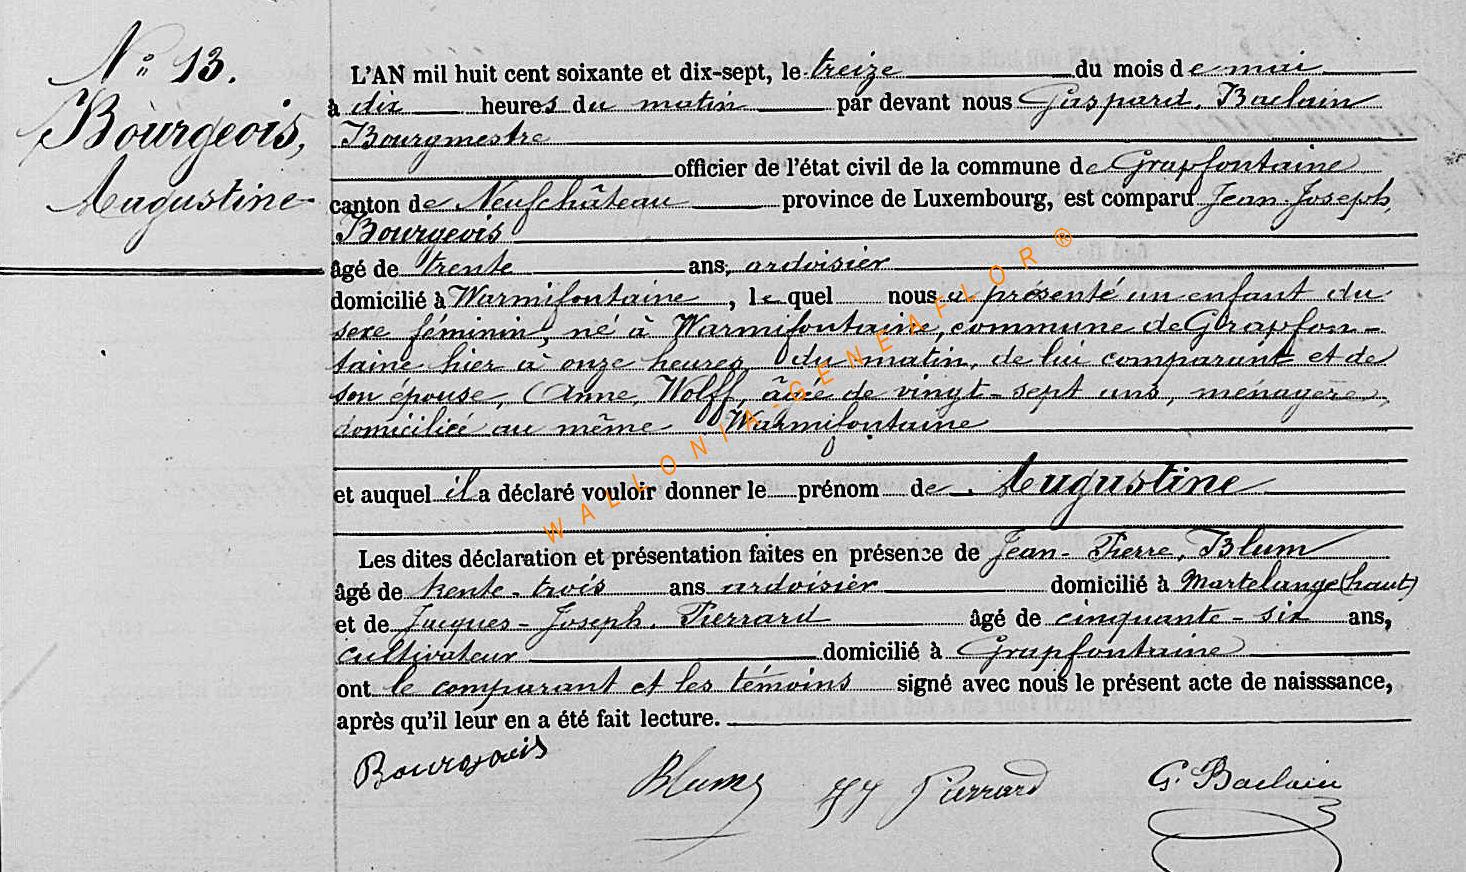 N° 13.
Bourgeois,
Augustine
L'AN mil huit cent soixante et dix-sept, le treize du mois de mai
à dix heures du matin par devant nous Gaspard Baclain
Bourgmestre
officier de l'état civil de la commune de Grapfontaine
canton de Neufchâteau province de Luxembourg, est comparu Jean-Joseph,
Bourgeois
âgé de trente ans, ardoisier
domicilié à Warmifontaine, lequel nous a présenté un enfant du
sexe féminin, né à Warmifontaine, commune de Grapfon-
taine hier à onze heures du matin, de lui comparant et de
son épouse, Anne, Wolff, âgé de vingt-sept ans, ménagère,
domiciliée au même Warmifontaine
et auquel il a déclaré vouloir donner le prénom de Augustine
Les dites déclaration et présentation faites en présence de Jean-Pierre, Blum
âgé de trente-trois ans ardoisier domicilié à Martelange (haut)
et de Jacques-Joseph, Pierrard âgé de cinquante-six ans,
cultivateur domicilié à Grapfontaine
ont le comparant et les témoins signé avec nous le présent acte de naisssance,
après qu'il leur en a été fait lecture.
Bourgeois Blum JJ Pierrard G. Baclain
WALLONIA-GENEAFLOR®